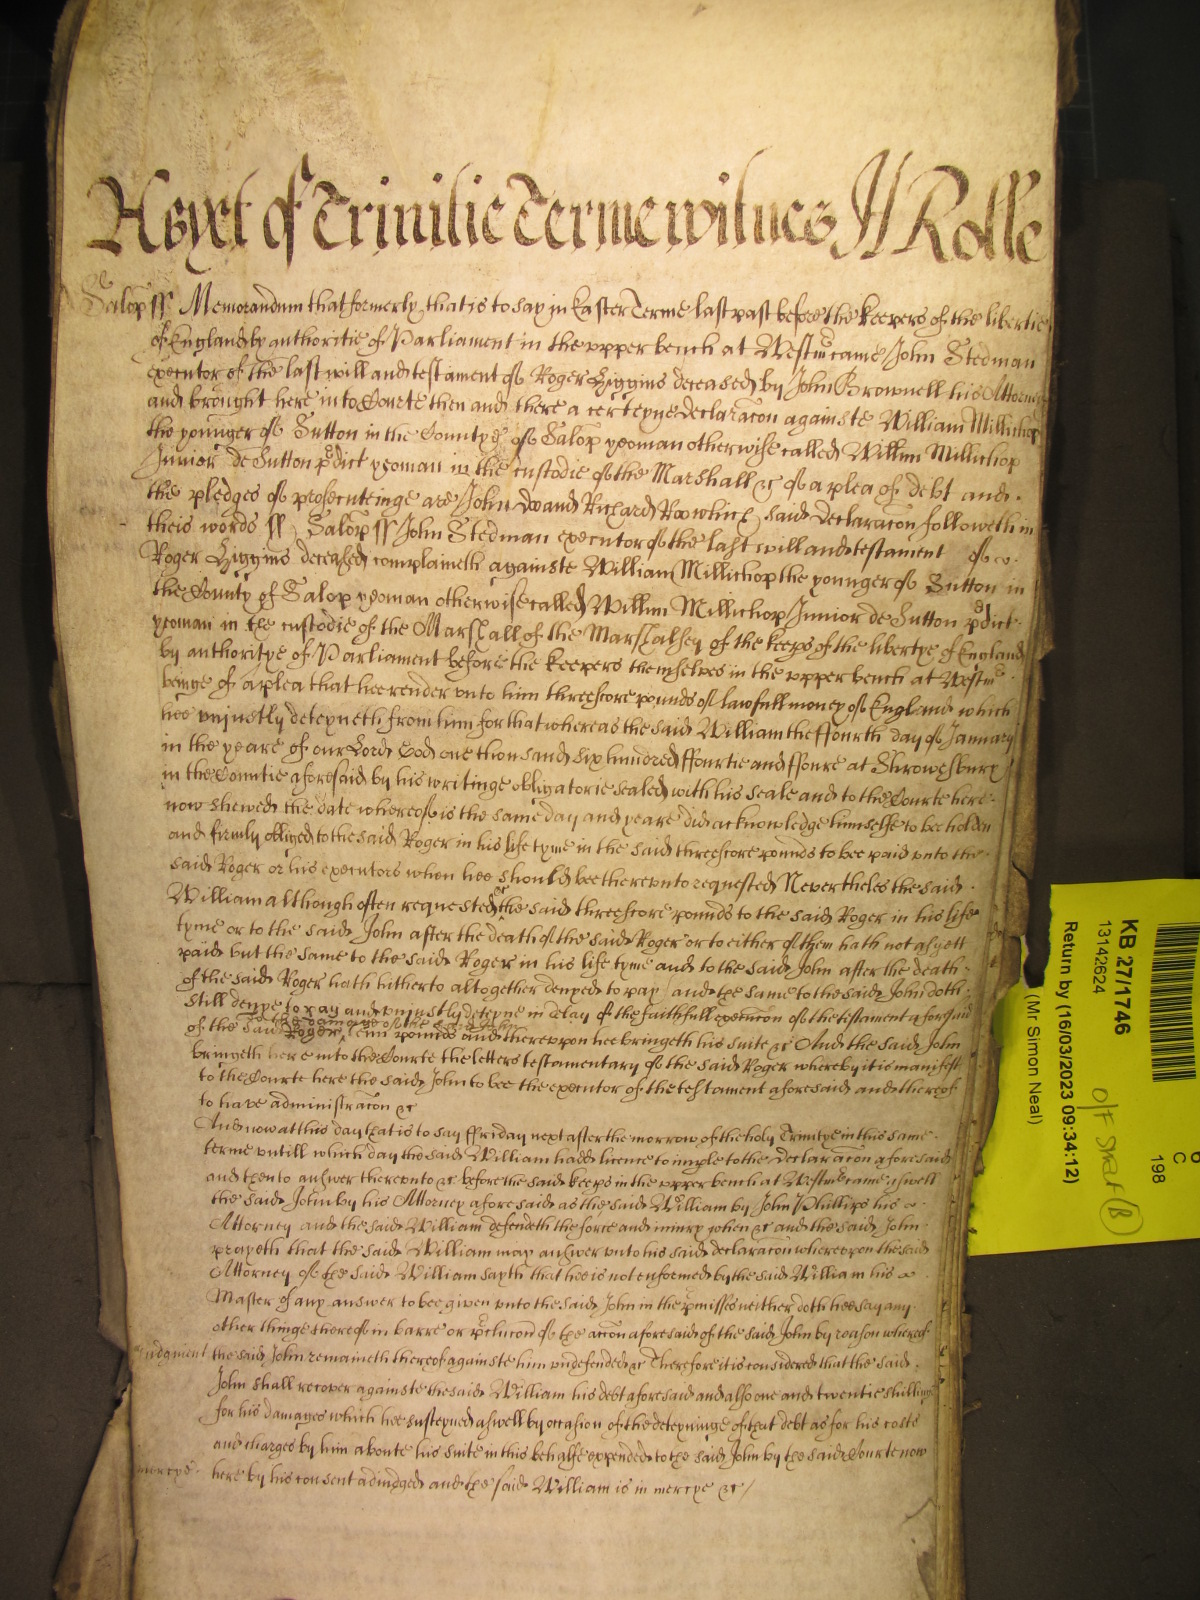 yet of Trinitie Terme witnes H Rolle
Salop ss Memorandum that formerly that is to say in Easter Terme last past before the keepers of the libertie
of England by authoritie of Parliament in the upper bench at Westm came John Stedman
executor of the last will and testament of Roger Higgins deceased by John Brownell his Attorney
and brought here into Courte then and there a certeyne declaracon againste William Millichop
the younger of Sutton in the Countye of Salop yeoman otherwise called Willm Millichop
Junior de Sutton pdict yeoman in the custodie of the Marshall &c of a plea of debt and
the pledges of prosecuteinge are John Doo and Richard Roo which said declaracon followeth in
theis words ss Salop ss John Stedman executor of the last will and testament of
Roger Higgins deceased complaineth againste William Millichop the younger of Sutton in
the County of Salop yeoman otherwise called Willm Millichop Junior de Sutton pdict
yeoman in the custodie of the Marshall of the Marshalsey of the keeps of the libertye of England
by authoritye of Parliament before the keepers themselves in the upper bench at Westm
beinge of a plea that hee render unto him threescore pounds of lawfull money of England which
hee uniustly deteyneth from him for that whereas the said William the ffourth day of January
in the yeare of our Lord God one thousand six hundred ffourtie and ffoure at Shrowesbury
in the Countie aforesaid by his writinge obligatorie sealed with his seale and to the Courte here
now shewed the date whereof is the same day and yeare did acknowledge himselfe to bee holden
and firmly obliged to the said Roger in his life tyme in the said threescore pounds to bee paid unto the
said Roger or his executors when hee should bee thereunto requested Nevertheles the said
William although often requested &c the said threescore pounds to the said Roger in his life
tyme or to the said John after the death of the said Roger or to either of them hath not as yett
paid but the same to the said Roger in his life tyme and to the said John after the death
of the said Roger hath hitherto altogether denyed to pay and the same to the said John doth
still denye to pay and uniustly deteyne in delay of the faithfull execucon of the testament aforesaid
of the said Roger to the damage of the said John tenn pounds and thereupon hee bringeth his suite &c And the said John
bringeth here into the Courte the letters testamentary of the said Roger whereby it is manifest
to the Courte here the said John to bee the executor of the testament aforesaid and thereof
to have administracon &c
And now at this day that is to say ffriday next after the morrow of the holy Trinitye in this same
terme untill which day the said William hadd licence to imple to the declaracon aforesaid
and then to answer thereunto &c before the said keeps in the upper bench at Westm came aswell
the said John by his Attorney aforesaid as the said William by John Phillips his
Attorney and the said William defendeth the force and iniury when &c and the said John
prayeth that the said William may answer unto his said declaracon whereupon the said
Attorney of the said William sayth that hee is not enformed by the said William his
Master of any answer to bee given unto the said John in the pmisses neither doth hee say any
other thinge thereof in barre or pclucon of the accon aforesaid of the said John by reason whereof
Iudgment the said John remaineth thereof againste him undefended &c Therefore it is considered that the said
John shall recover againste the said William his debt aforesaid and also one and twentie shillings
for his damages which hee susteyned aswell by occasion of the deteyninge of that debt as for his costs
and charges by him aboute his suite in this behalfe expended to the said John by the said Courte now
mercye here by his consent adiudged and the said William is in mercye &c
KB 27/1746
13142624
Return by (16/03/2023 09:34:12)
(Mr Simon Neal)
C
198